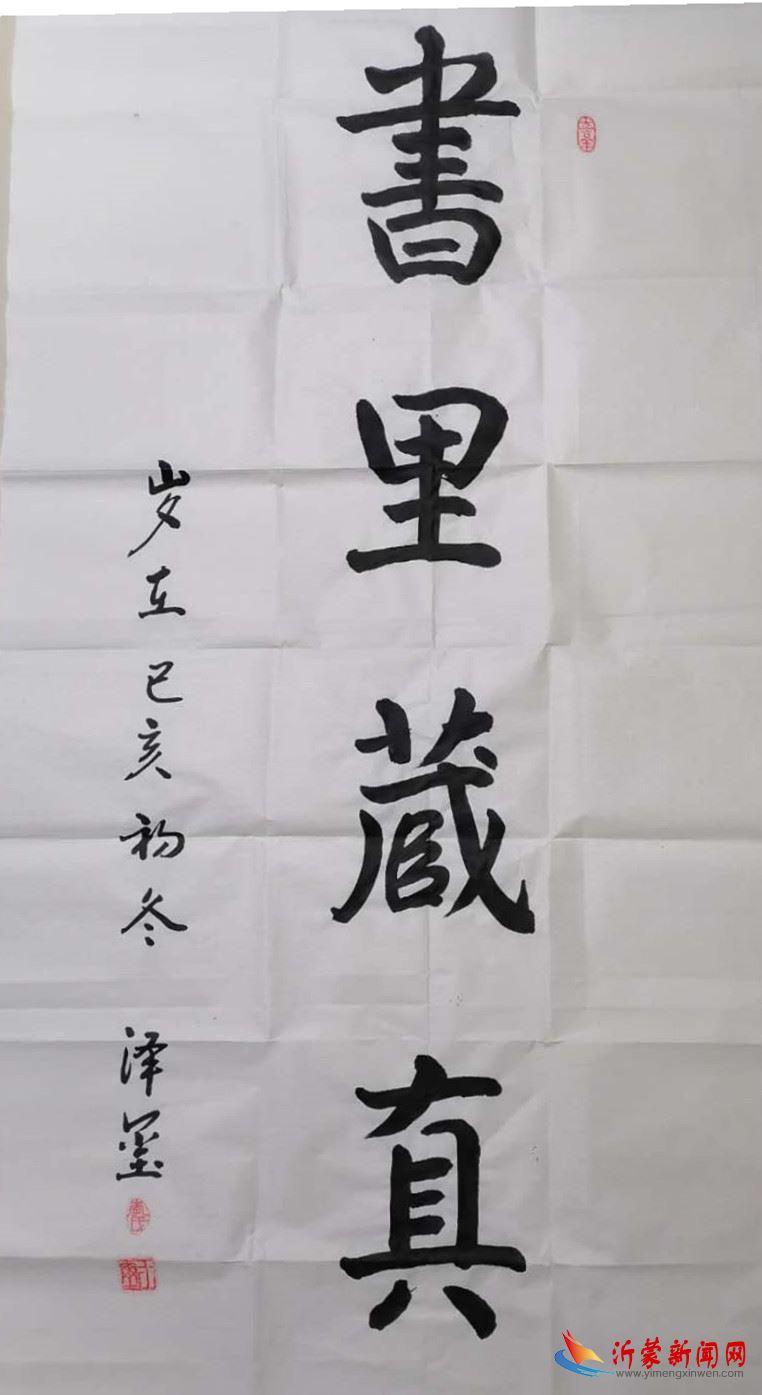 書里蔵真
岁在己亥初冬 泽墨
沂蒙新闻网
www.yimengxinwen.com